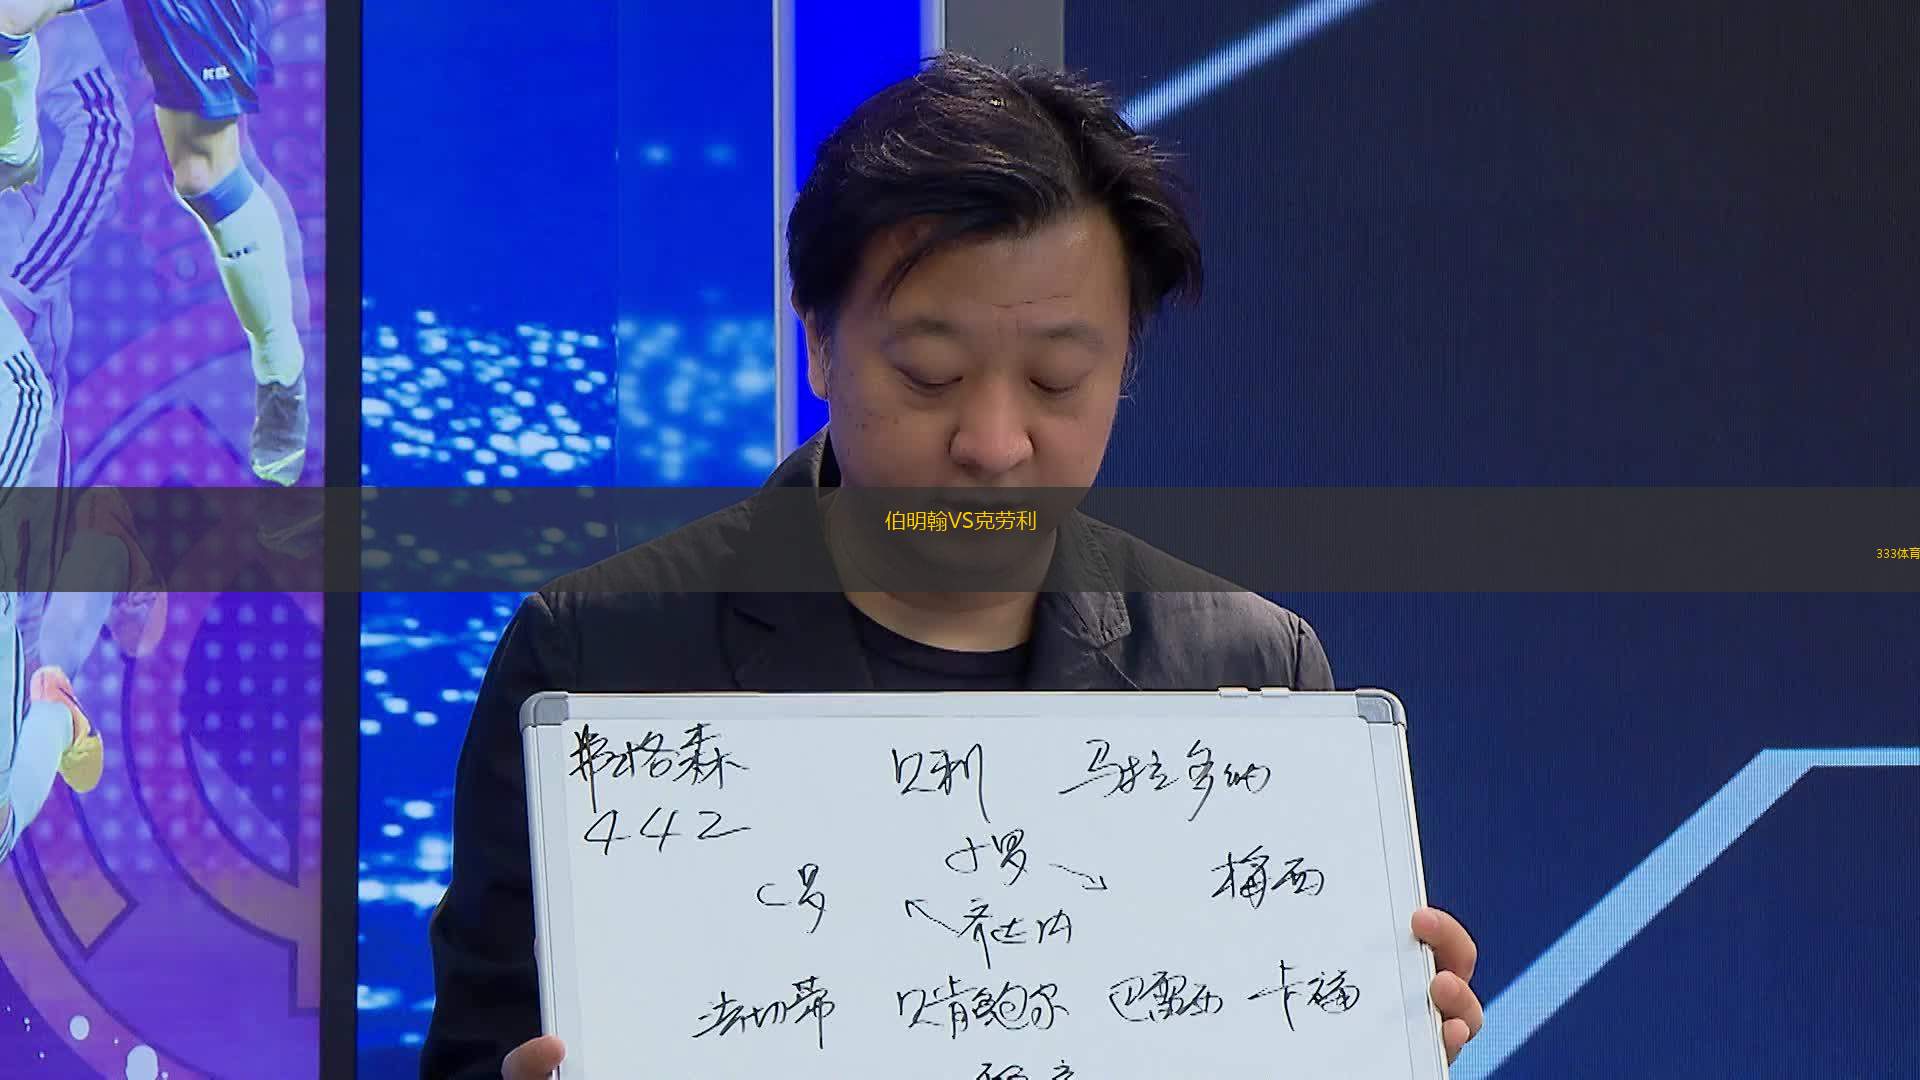 伯明翰VS克劳利
333体育
弗格森 贝利 马拉多纳
442
小罗
C罗 梅西
齐达内
法切蒂 贝肯鲍尔 巴雷西 卡福